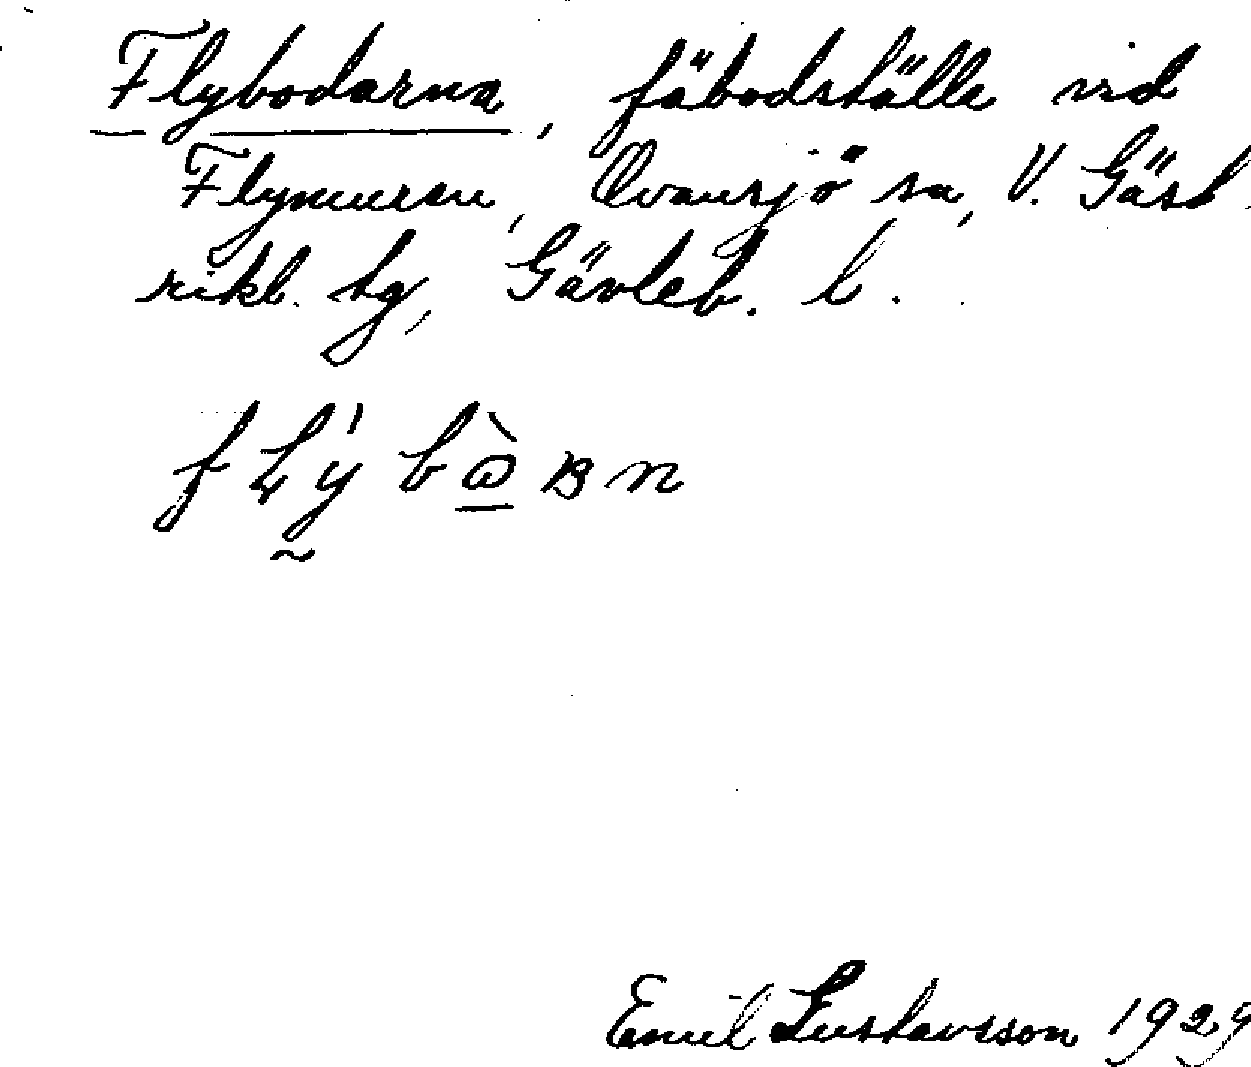 Flybodarna, fäbodställe vid
Flymuren, Ovansjö sn, V. Gäst
rikl. tg, Gävleb. l.
Emil Gustavsson 1929